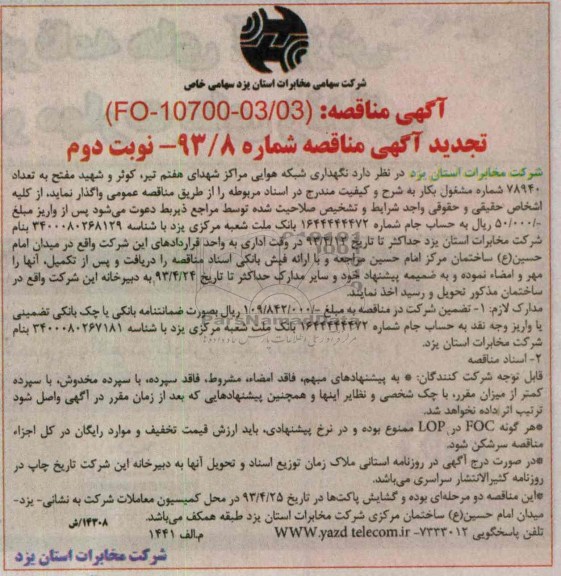 شرکت سهامی مخابرات استان یزد سهامی خاص
آگهی مناقصه: (FO-10700-03/03)
تجدید آگهی مناقصه شماره ۹۳/۸- نوبت دوم
شرکت مخابرات استان یزد در نظر دارد نگهداری شبکه هوایی مراکز شهدای هفتم تیر، کوثر و شهید مفتح به تعداد
۷۸۹۴۰ شماره مشغول بکار به شرح و کیفیت مندرج در اسناد مربوطه را از طریق مناقصه عمومی واگذار نماید، از کلیه
اشخاص حقیقی و حقوقی واجد شرایط و تشخیص صلاحیت شده توسط مراجع ذیربط دعوت می‌شود پس از واریز مبلغ
۵۰/۰۰۰/- ریال به حساب جام شماره ۱۶۴۴۴۴۴۴۷۲ بانک ملت شعبه مرکزی یزد با شناسه ۳۴۰۰۰۸۰۲۶۸۱۲۹ بنام
شرکت مخابرات استان یزد حداکثر تا تاریخ در وقت اداری به واحد قراردادهای این شرکت واقع در میدان امام
حسین(ع) ساختمان مرکز امام حسین مراجعه و با ارائه فیش بانکی اسناد مناقصه را دریافت و پس از تکمیل، آنها را
مهر و امضاء نموده و به ضمیمه پیشنهاد خود و سایر مدارک حداکثر تا تاریخ ۹۳/۴/۲۴ به دبیرخانه این شرکت واقع در
ساختمان مذکور تحویل و رسید اخذ نمایند.
مدارک لازم: ۱- تضمین شرکت در مناقصه به مبلغ ۱۰۹/۸۴۲/۰۰۰/- ریال بصورت ضمانتنامه بانکی یا چک بانکی تضمینی
یا واریز وجه نقد به حساب جام شماره ۱۶۴۴۴۴۴۴۷۲ بانک ملت شعبه مرکزی یزد با شناسه ۳۴۰۰۰۸۰۲۶۷۱۸۱ بنام
شرکت مخابرات استان یزد.
۲- اسناد مناقصه
قابل توجه شرکت کنندگان: * به پیشنهادهای مبهم، فاقد امضاء، مشروط، فاقد سپرده، با سپرده مخدوش، با سپرده
کمتر از میزان مقرر، با چک شخصی و نظایر اینها و همچنین پیشنهادهایی که بعد از زمان مقرر در آگهی واصل شود
ترتیب اثر داده نخواهد شد.
*هر گونه FOC در LOP ممنوع بوده و در نرخ پیشنهادی، باید ارزش قیمت تخفیف و موارد رایگان در کل اجزاء
مناقصه سرشکن شود.
*در صورت درج آگهی در روزنامه استانی ملاک زمان توزیع اسناد و تحویل آنها به دبیرخانه این شرکت تاریخ چاپ در
روزنامه کثیرالانتشار سراسری می‌باشد.
*این مناقصه دو مرحله‌ای بوده و گشایش پاکت‌ها در تاریخ ۹۳/۴/۲۵ در محل کمیسیون معاملات شرکت به نشانی- یزد-
میدان امام حسین(ع) ساختمان مرکزی شرکت مخابرات استان یزد طبقه همکف می‌باشد.
۱۴۳۰۸/ش
تلفن پاسخگویی ۷۲۳۳۰۱۲- WWW.yazd telecom.ir
م.الف ۱۴۴۱
شرکت مخابرات استان یزد